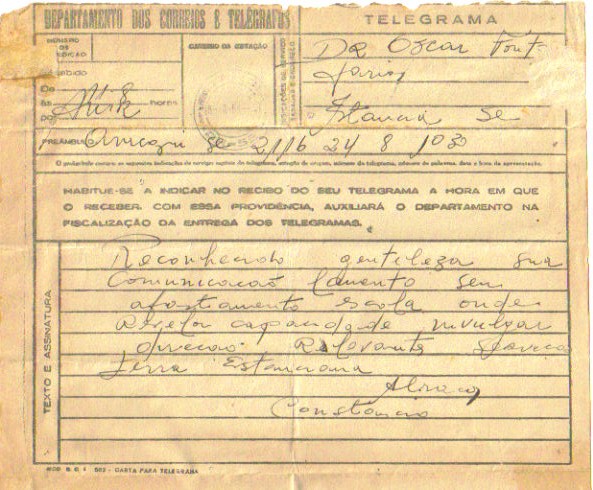 DEPARTAMENTO DOS CORREIOS E TELÉGRAFOS
TELEGRAMA
NÚMERO DE EDIÇÃO
CARIMBO DA ESTAÇÃO
INDICAÇÕES DE SERVIÇO
Dr Oscar Font
Farias
Recebido
De
às HORAS
por
Estancia Se
PREÂMBULO Se 2116 24 8 1030
O preâmbulo contém as seguintes indicações de serviço: espécie do telegrama, estação de origem, número do telegrama, número de palavras, data e hora da apresentação.
HABITUE-SE A INDICAR NO RECIBO DO SEU TELEGRAMA A HORA EM QUE
O RECEBER. COM ESSA PROVIDÊNCIA, AUXILIARÁ O DEPARTAMENTO NA
FISCALIZAÇÃO DA ENTREGA DOS TELEGRAMAS.
TEXTO E ASSINATURA
Reconhecido gentileza sua
Comunicação lamento seu
afastamento escola onde
Revelou capacidade invulgar
direção Relevante serviço
terra Estanciana
Abraços
Constancio
CARTA PARA TELEGRAMA